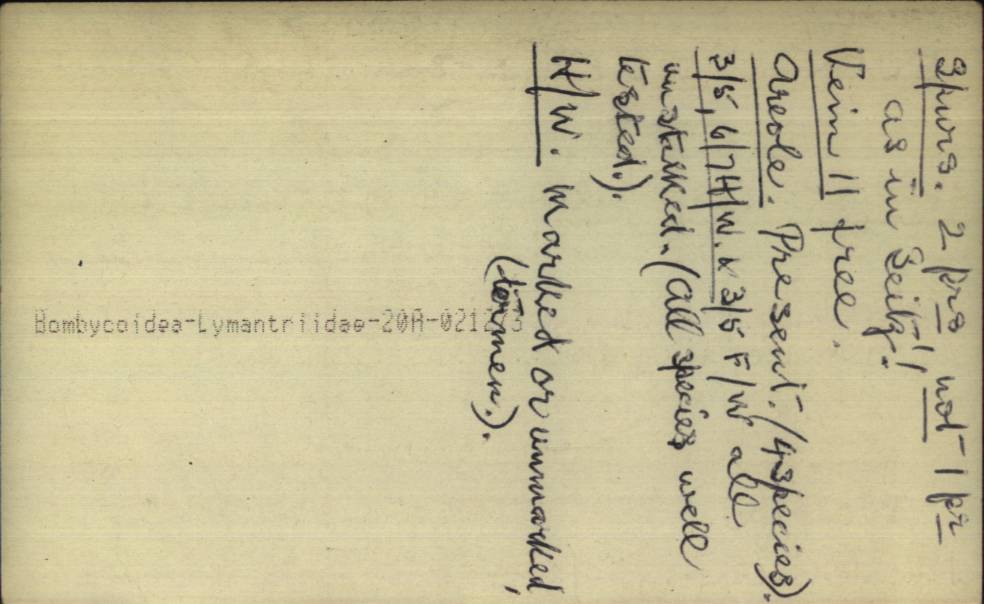 Spurs. 2 prs not 1 pr
as in Seitz!
Vein 11 free.
Areole. Present. (4 species).
3/5, 6/7 H/W. & 3/5 F/W all
unstalked. (All species well
tested.).
H/W. Marked or unmarked,
Bombycoidea-Lymantriidae-20A-021273